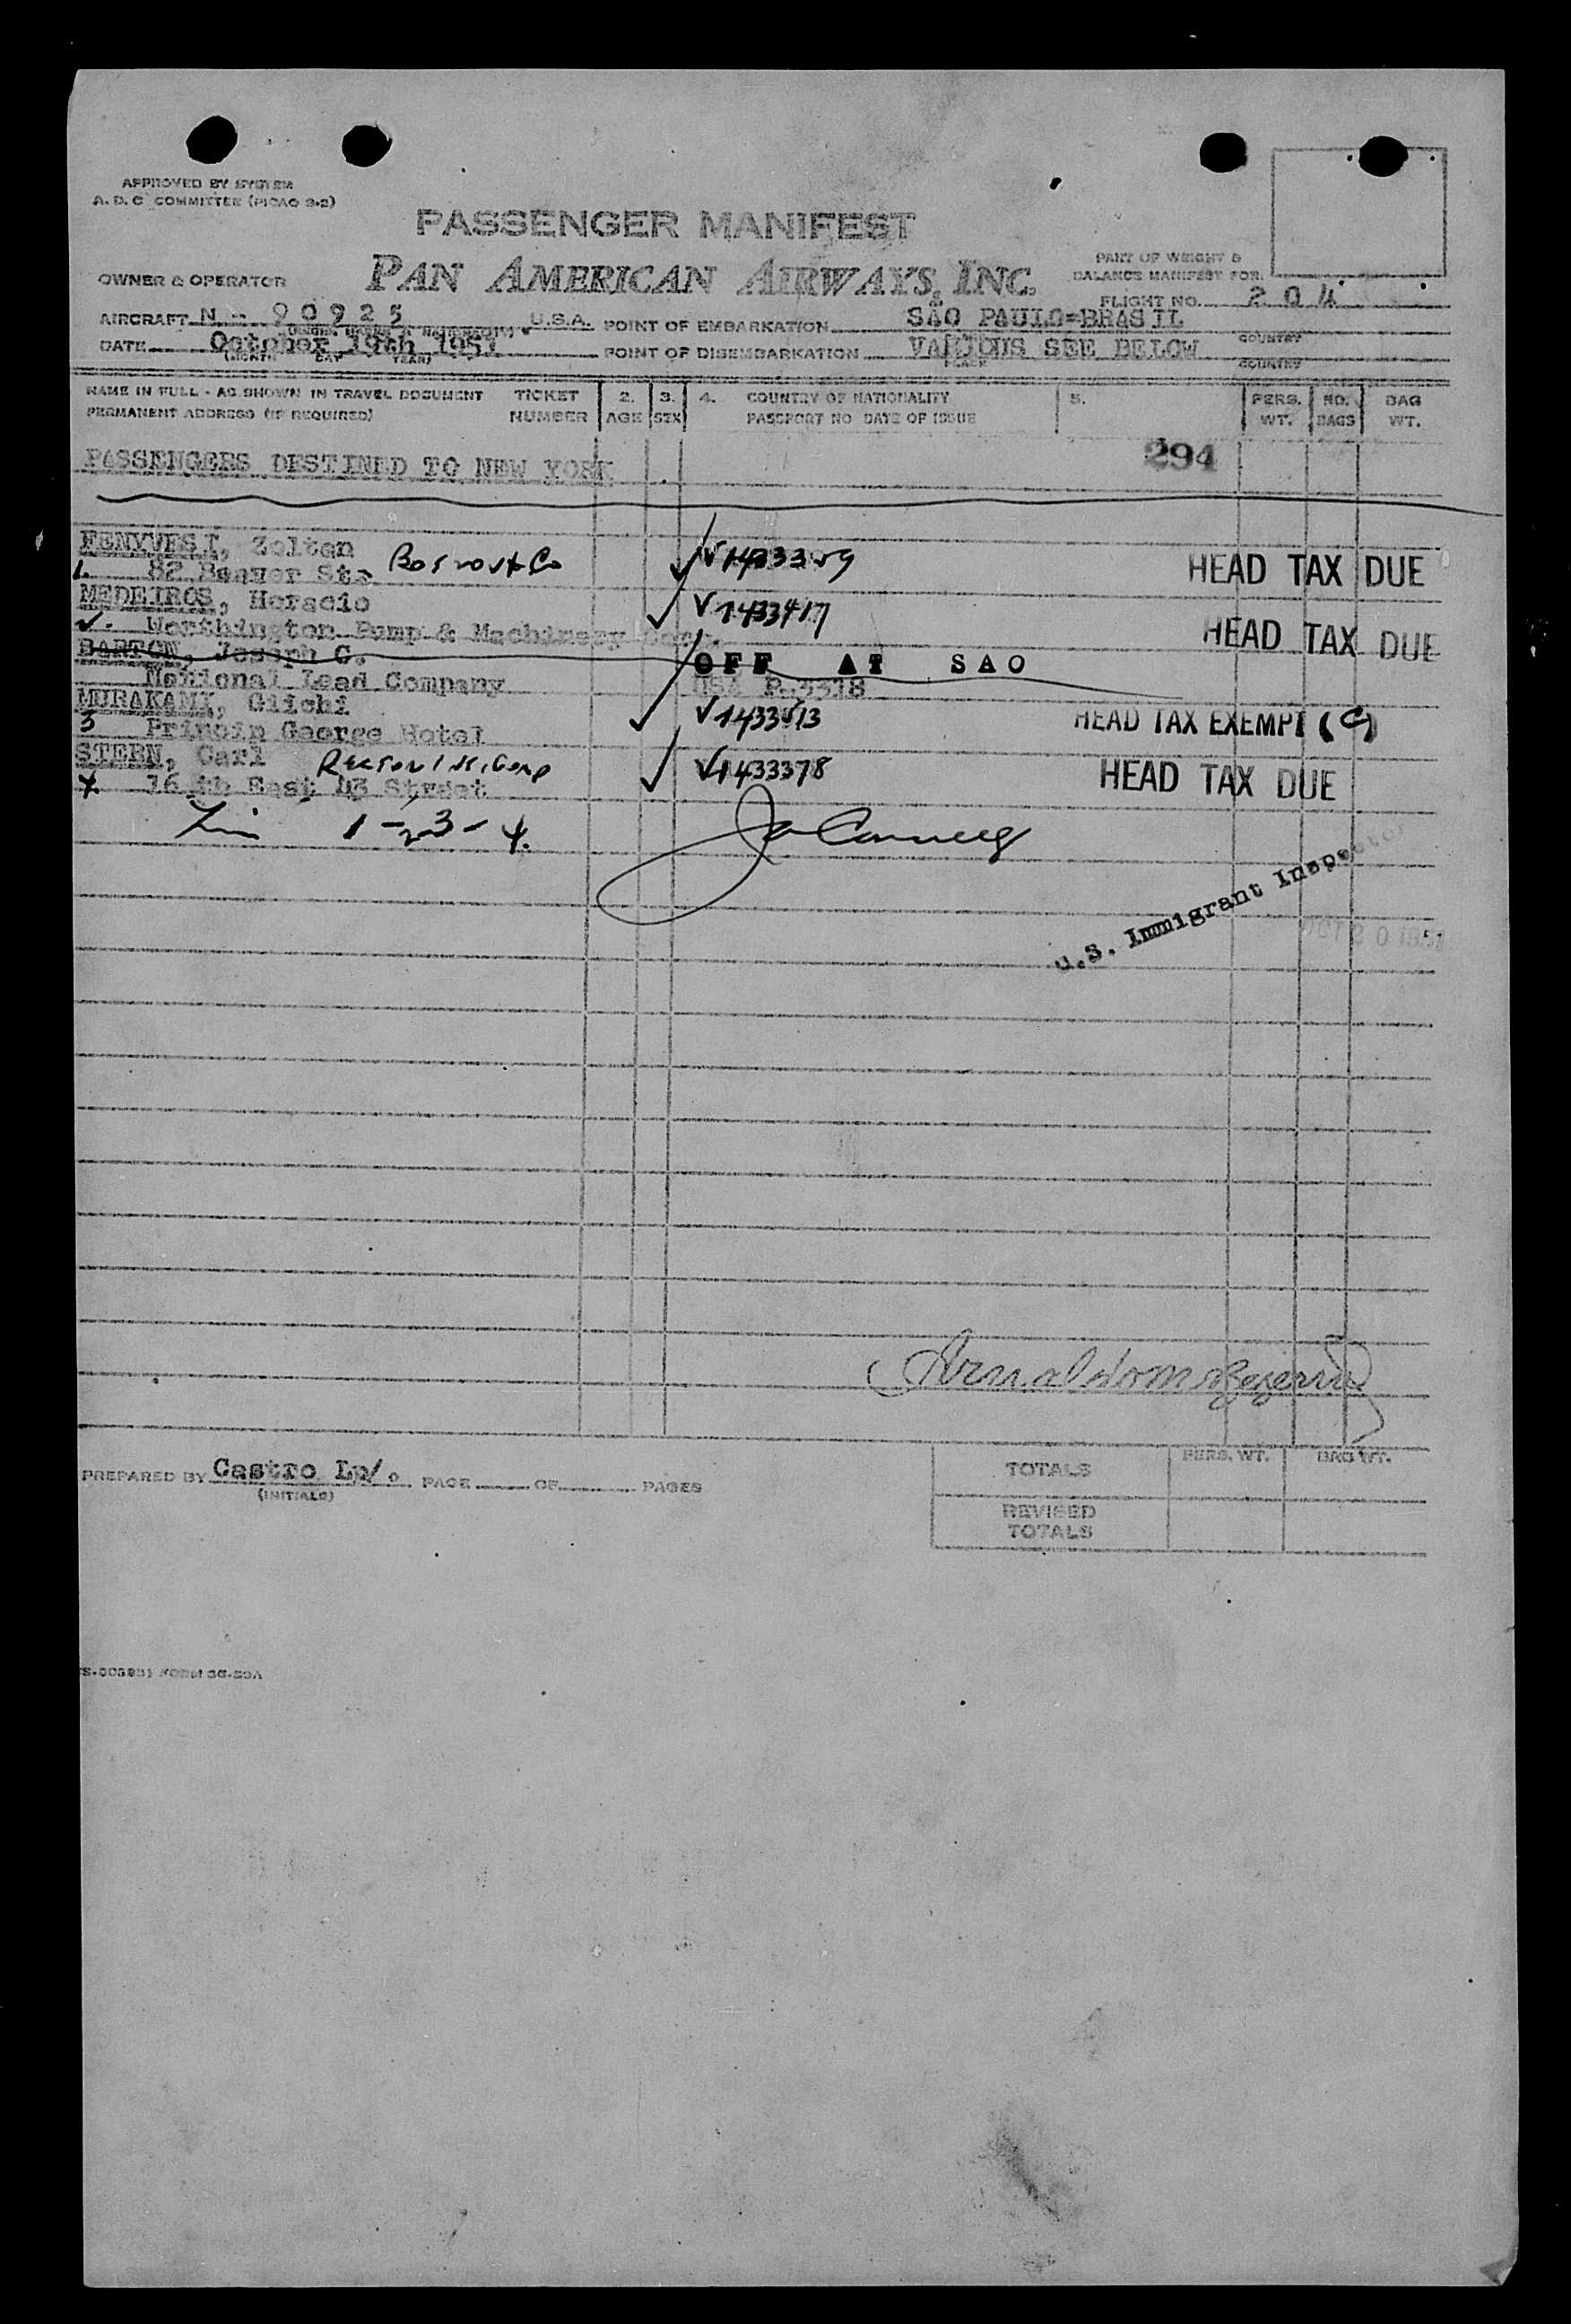 APPROVED BY SYSTEM
A. D. C COMMITTEE (PICAO 3-2)
PASSENGER MANIFEST
PART OF WEIGHT &
BALANCE MANIFEST FOR:
OWNER & OPERATOR PAN AMERICAN AIRWAYS, INC.
FLIGHT NO. 204
AIRCRAFT N - 90925 U.S.A. POINT OF EMBARKATION SAO PAULO=BRASIL
COUNTRY
DATE October 19th 1951 POINT OF DISEMBARKATION VARIOUS SEE BELOW
(MONTH DAY YEAR) PLACE COUNTRY
NAME IN FULL - AS SHOWN IN TRAVEL DOCUMENT TICKET 2. 3. 4. COUNTRY OF NATIONALITY 5. PERS. NO. BAG
PERMANENT ADDRESS (IF REQUIRED) NUMBER AGE SEX PASSPORT NO DATE OF ISSUE WT. BAGS WT.
PASSENGERS DESTINED TO NEW YORK 294
FENYVESI, Zoltan
1. 82 Beaver St. HEAD TAX DUE
MEDEIROS, Horacio V1433417
Worthington Pump & Machinery Corp. HEAD TAX DUE
BARTON, Joseph C. OFF AT SAO
National Lead Company USA
MURAKAMI, Giichi HEAD TAX EXEMPT (C)
3 Princip George Hotel
STERN, Carl V1433378 HEAD TAX DUE
4. 16 th East 43 Street
1-2-3-4.
U.S. Immigrant Inspector
OCT 20 1951
PREPARED BY Castro Lp/o PAGE OF PAGES
(INITIALS)
TOTALS PERS. WT. BAG WT.
REVISED
TOTALS